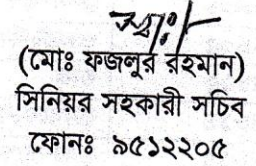 (মোঃ ফজলুর রহমান)
সিনিয়র সহকারী সচিব
ফোনঃ ৯৫১২২০৫